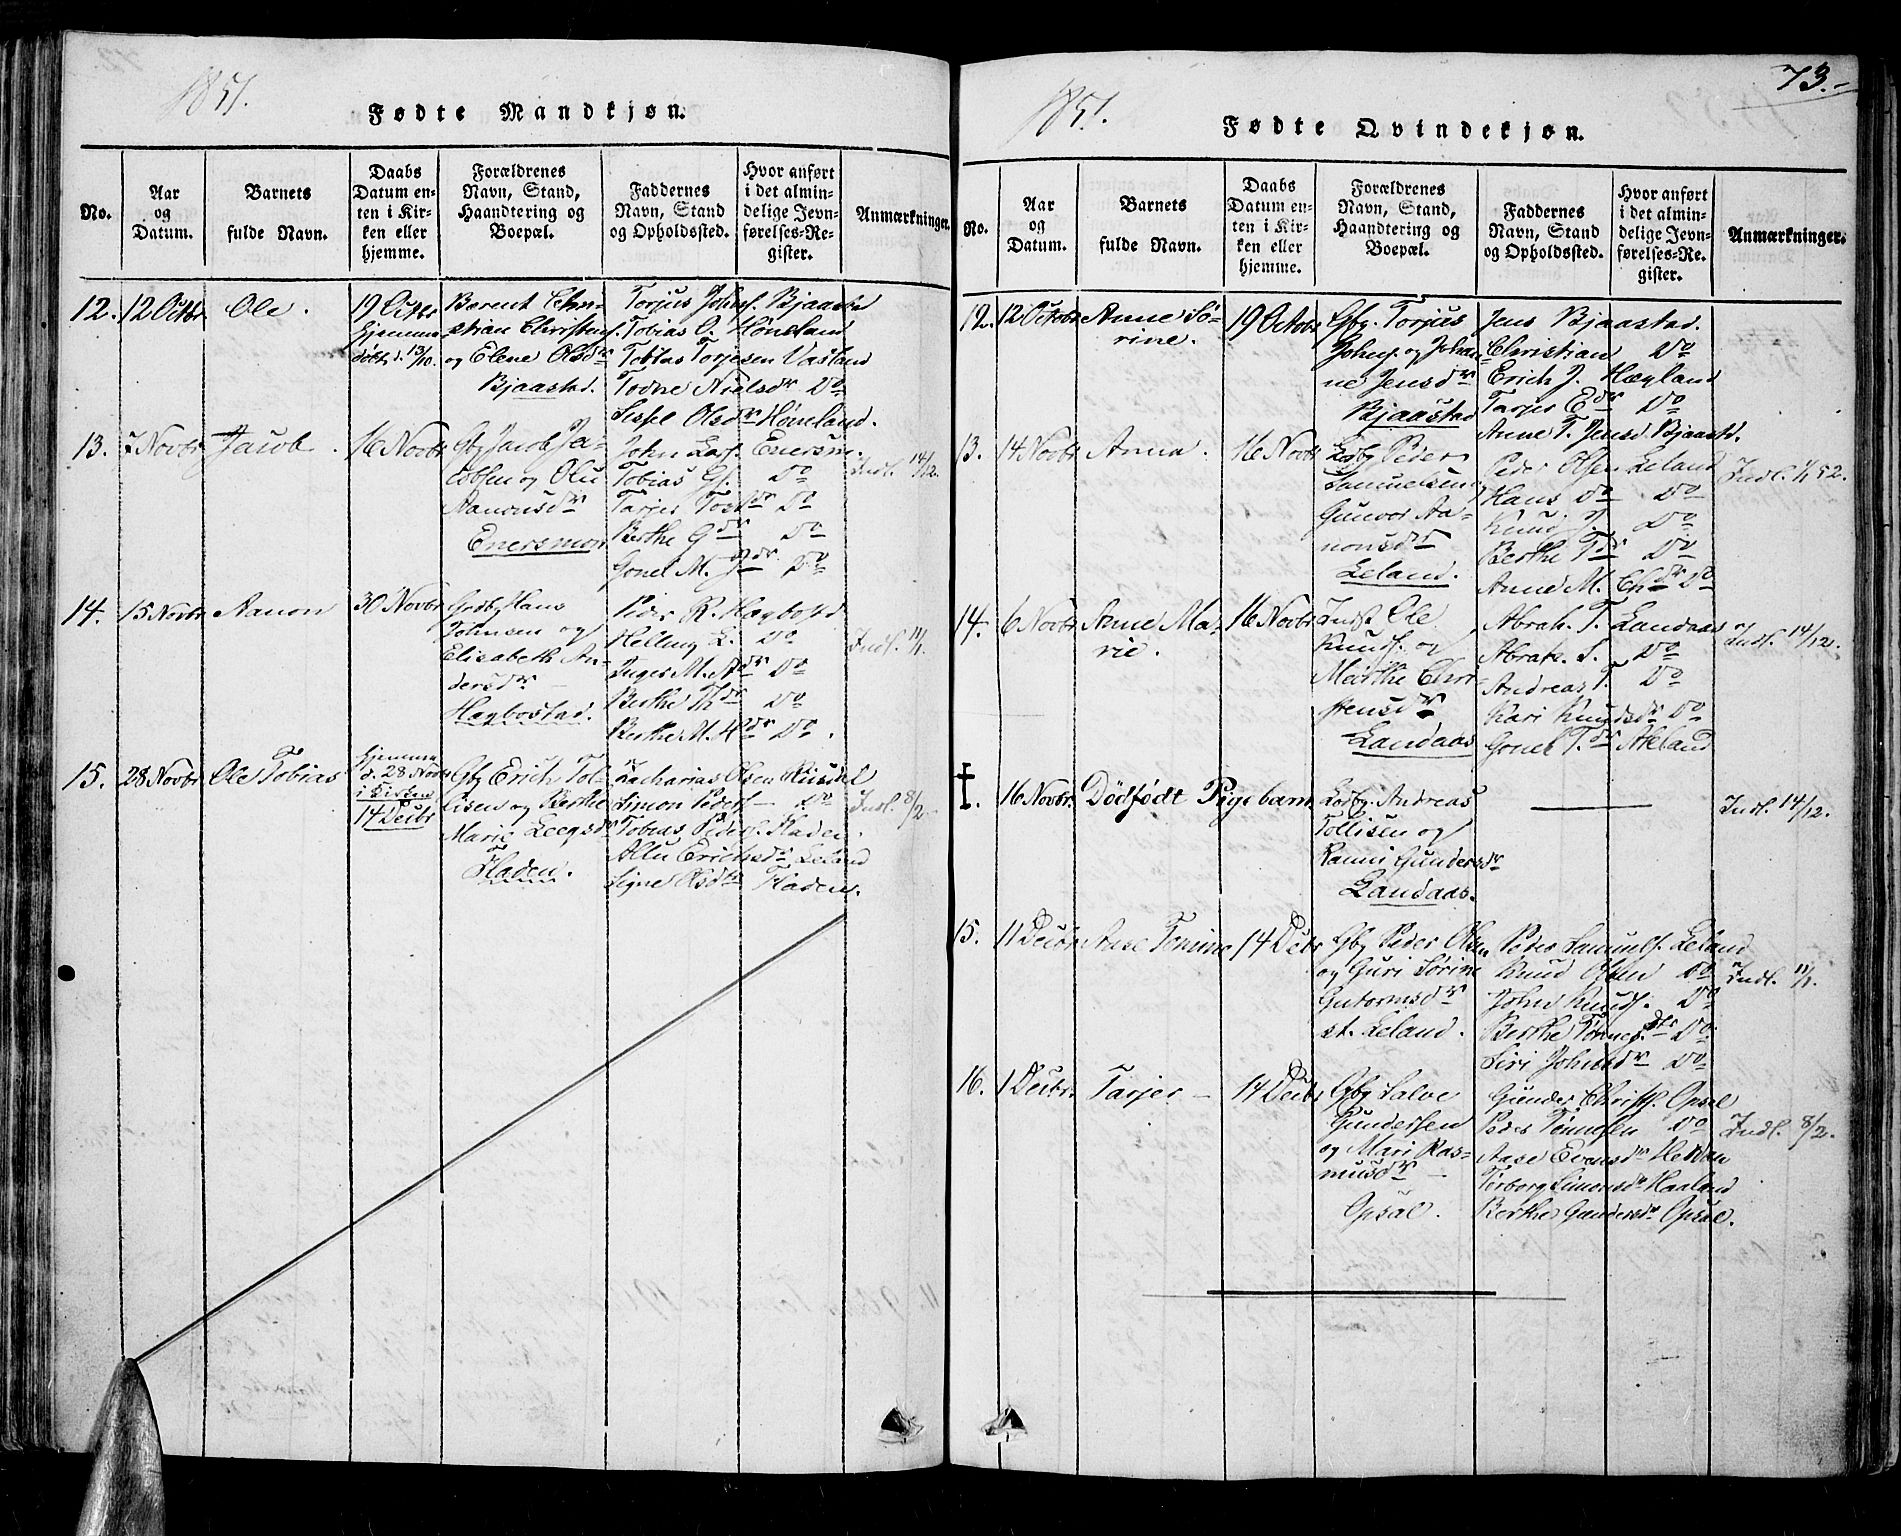 1851.
Fødte Mandkjøn.
No.
Aar
og
Datum.
Barnets
fulde Navn.
Daabs
Datum en-
ten i Kir-
ken eller
hjemme.
Forældrenes
Navn, Stand,
Haandtering og
Boepæl.
Faddernes
Navn, Stand
og Opholdssted.
Hvor anført
i det almin-
delige Jevn-
førelses-Re-
gister.
Anmærkninger.
12. 12 Octbr Ole. 19 Octbr
Hjemme
døbt d. 13/10.
Berent Chri-
stian Christens.
og Elene Olsdr
Bjaastad.
Torjus Johns. Bjaasta
Tobias O. Høneland
Tobias Torjesen Vasland
Todne Nielsdr Do
Sissel Olsdr Høneland.
13. 7 Novbr Jacob. 16 Novbr
Gbg Jacob Ja-
cobsen og Olu
Aanonsdr
Enersmon
John Lars. Enersm.
Tobias G. Do
Tarjer dr Do
Berthe Gdr Do
Gonel M. Jdr Do
Indl. 14/12.
14. 15 Novbr Aanon 30 Novbr
Hans
Johnsen og
Elisabeth An-
dersdr
Hægbostad.
Peder R. Hægbostd
Helling L. Do
Inger M. Adr Do
Berthe Thdr Do
Berthe M. Hdr Do.
Indl. 11/1.
15. 28 Novbr Ole Tobias
Hjemme
d. 28 Novbr
i Kirken
14 Decbr
Gbg Erich Tol-
lisen og Berthe
Marie Leegsdr
Fladen.
Zacharias Olsen Risdal
Simon Peders. Do
Tobias Peders. Fladen.
Allu Erichsdr Leland
Signe Olsdtr Fladen.
Indl. 8/2.
73.
1851.
Fødte Qvindekjøn.
No.
Aar
og
Datum.
Barnets
fulde Navn.
Daabs
Datum en-
ten i Kir-
ken eller
hjemme.
Forældrenes
Navn, Stand,
Haandtering og
Boepæl.
Faddernes
Navn, Stand
og Opholdssted.
Hvor anført
i det almin-
delige Jevn-
førelses-Re-
gister.
Anmærkninger.
12. 12 Octobr Anne Sø-
rine. 19 Octobr
Gbg. Torjus
Johns. og Johan-
ne Jensdr
Bjaastad
Jens Bjaastad.
Christian Do
Erich J. Hægland
Tarjer Edr Do
Anne T. Jensd Bjaastd.
13. 14 Novbr Anna. 16 Novbr
Peder
Samuelsen
Gunvor Aa-
nonsdr
Leland.
Peder Olsen Leland
Hans Do Do
Knud J. Do
Berthe Tdr Do
Anne M. Chdr Do
Indl. 1/1 52.
14. 6 Novbr Anne Ma-
rie. 16 Novbr
Inds. Ole
Knuds. og
Marthe Chri-
stensdr
Landaas
Abrah. T. Landaas
Abrah. S. Do
Andreas T. Do
Kari Knudsdr Do
Gonel T. dr Akland
Indl. 14/12.
†. 16 Novbr. Dödfödt Pigebarn.
Andreas
Tollisen og
Ranni Gundersdr
Landaas.
Indl. 14/12.
15. 11 Decbr Anne Tomine 14 Decbr
Gbg Peder Olsen
og Guri Sørine
Gutormsdr
st. Leland.
Peder Samuels. Leland
Knud Olsen Do
John Knuds. Do
Berthe Tønnes. dtr Do
Siri Johnsdr Do
Indl. 11/1.
16. 1 Decbr. Tarjer 14 Decbr
Gbg Salve
Gundersen
og Mari Ras-
musdr
Opsal.
Gunder Christs. Opsal
Peder Tønnesen Do
Aase Evensdr Heddan
Torborg Simonsdr Haaland
Berthe Gundersdr Opsal.
Indl. 8/2.